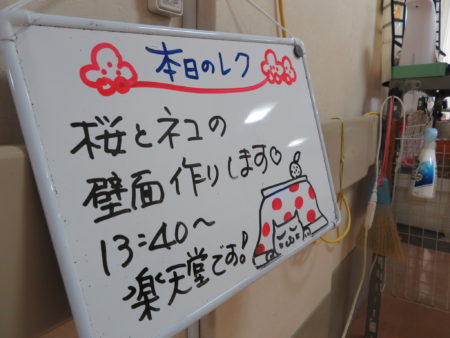 本日のレク
桜とネコの
壁面作りします♡
13:40〜
楽天堂です!